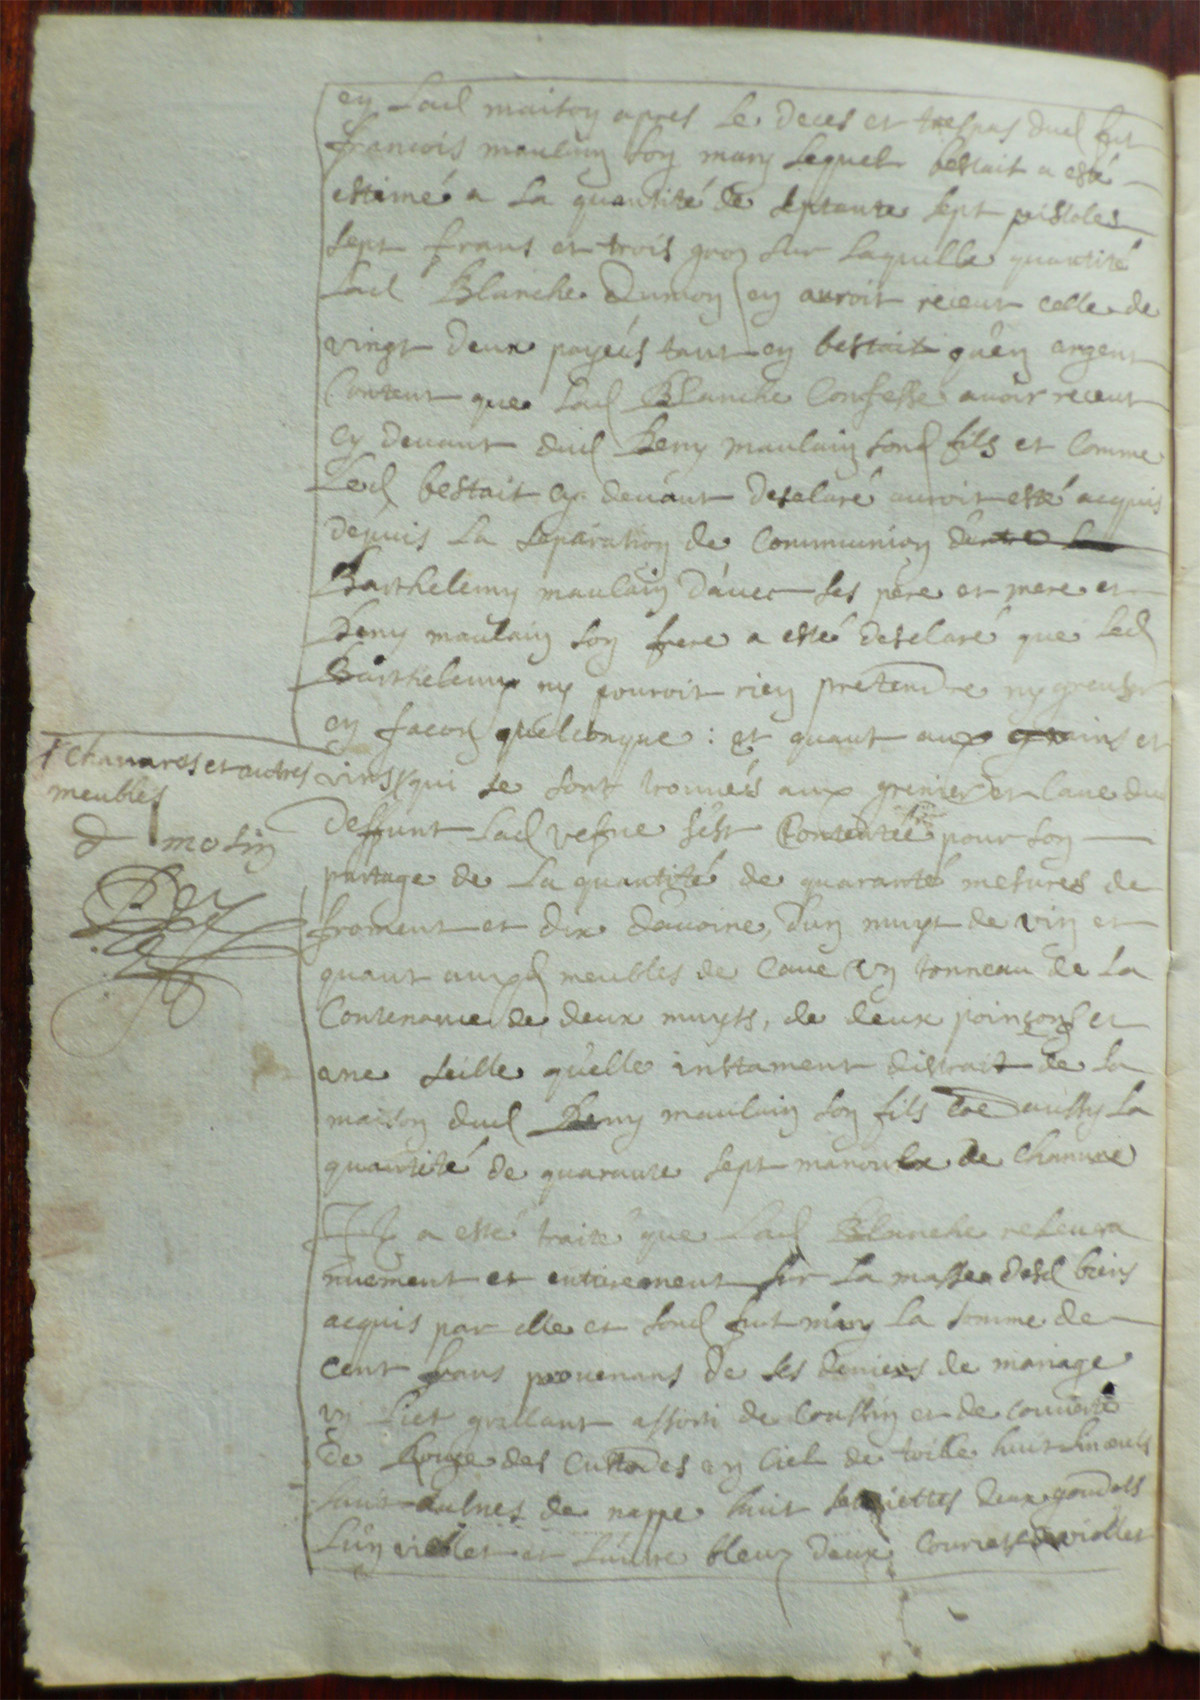 en lad maison apres le deces et trespas dud fut
francois maulain son mary lequel bestait a esté
estimé a la quantité de septante sept pistoles
sept frans et trois gros sur laquelle quantité
Lad Blanche Dumon en auroit receut celle de
vingt deux payéés tant en bestait qu'en argent
Content que lad Blanche Confesse avoir receut
Cy devant dud Deny maulain sond fils et Comme
Led bestait cy devant desclaré auroit esté acquis
depuis La separation de Communion
Barthelemy maulain d'avec ses pere et mere et
Deny maulain son frere a esté desclaré que led
Barthelemy ny pouroit rien pretendre ny
en facon quelconque : et quant aux grains et
vins qui se sont trouvés aux grenier et Cave du
deffunt Lad vefve s'est Contentée pour son
partage de La quantité de quarante mesures de
froment et dix d'avoine, d'un muyt de vin et
quant auxd meubles de Cave un tonneau de La
Contenance de deux muyts, de deux poinçons et
une seille qu'elle instament distrait de La
maison dud Deny maulain son fils Coe aussy La
quantité de quarante sept manoulx de Chanvre
Il a esté traité que Lad Blanche relevera
nuement et entierement sur La masse desd biens
acquis par elle et sond fut mary La somme de
cent frans provenans de ses deniers de mariage
un Lict assorti de Coussin et de Couverte
de Rouge des Custodes en Ciel de toille huit linceuls
huit aulnes de nappe huit serviettes deux
L'un viollet et L'autre bleuz deux viollet
Chanvres et autres
meubles